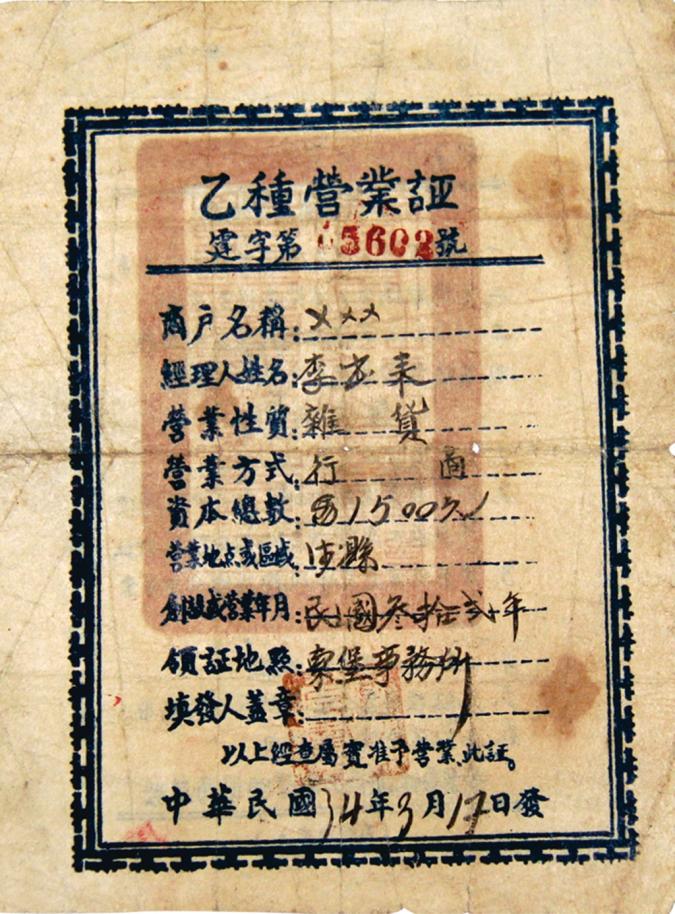 乙種營業証
字第 5602號
商户名稱:×××
經理人姓名:李
營業性質:雜貨
營業方式:行商
資本總數:1500元
營業地点或區域:涉縣
創設或營業年月:民國叁拾弍年
領証地點:東堡事務所
填發人蓋章:
以上經查屬實准予營業此証。
中華民國34年3月17日發